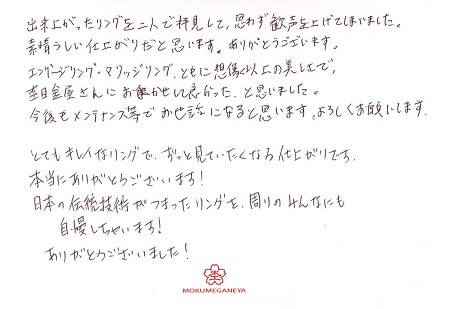 出来上がったリングを二人で拝見して、思わず歓声を上げてしまいました。
素晴らしい仕上がりだと思います。ありがとうございます。
エンゲージリング・マリッジリング、ともに想像以上の美しさで、
杢目金屋さんにお任せして良かった、と思いました。
今後もメンテナンス等でお世話になると思います。よろしくお願いします。
とてもキレイなリングで、ずっと見ていたくなる仕上がりです。
本当にありがとうございます！
日本の伝統技術がつまったリングを、周りのみんなにも
自慢しちゃいます！
ありがとうございました！
MOKUMEGANEYA